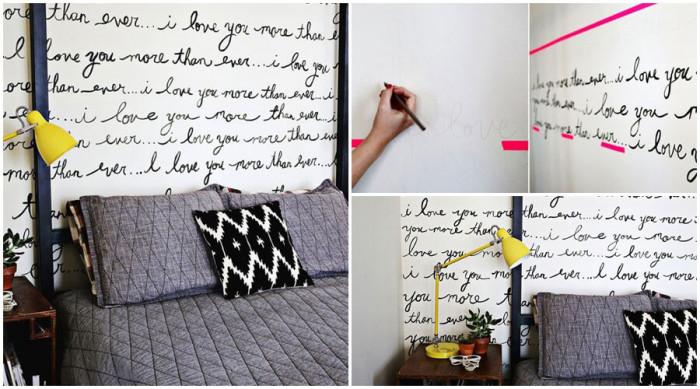 than ever...i love you more than
i love you more than ever...i love
more than ever...i love you more than ever...
ever...i love you more than ever...i
i love you more than ever...i love
than ever...I love you more than ever...
love you more than ever...
love
love you more than ever...i love you
you more than ever...i love you
love you more than ever...i love you more
i love you more than ever...i love you more
you more than ever...i love you more
love you more ever...i love you
i love you than ever...I love you more
you more than ever
love you more
you more